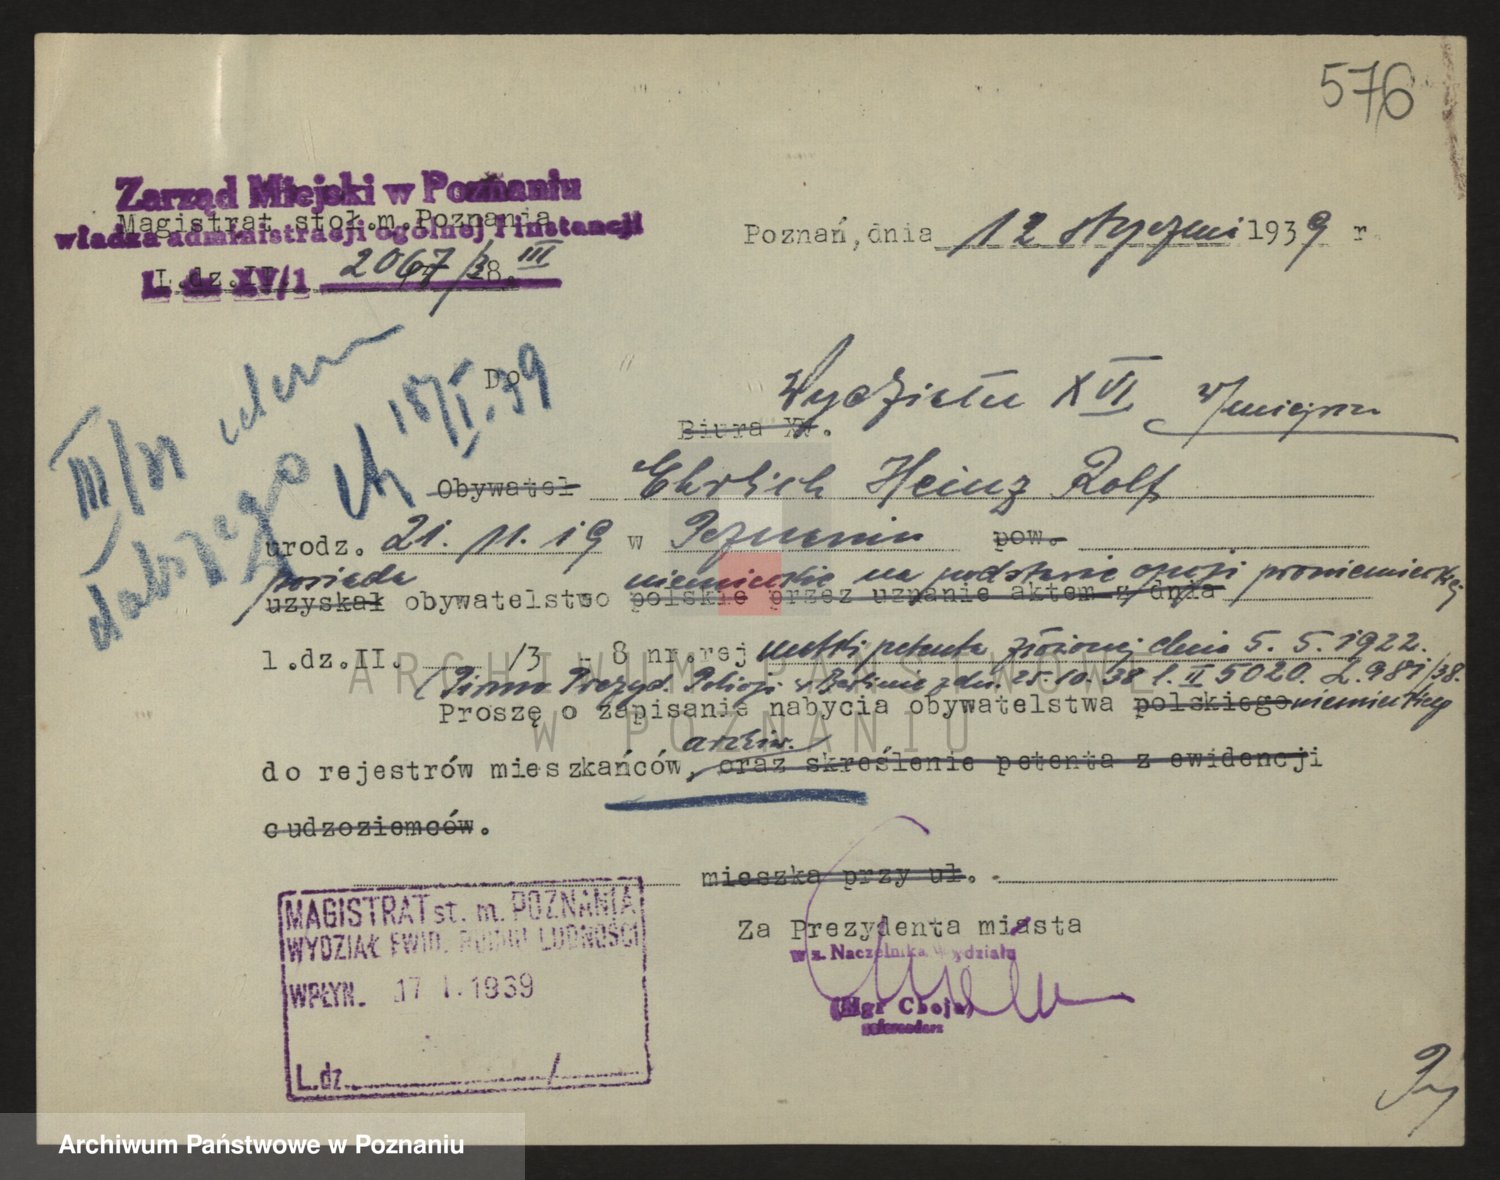 576
Zarząd Miejski w Poznaniu
Magistrat stoł.m.Poznania
władza administracji ogólnej I instancji
L. dz. XV/1 2067/38. III
Poznań, dnia 12 stycznia 1939 r
Do
18/I.39
Wydziału XVI w/miejscu
Biura XV.
III/VI
Obywatel Ehrlich Heinz Rolf
urodz. 21. 11. 19 w Poznaniu pow.
posiada niemieckie na podstawie opcji proniemieckiej
uzyskał obywatelstwo polskie przez uznanie aktem z dnia
l.dz.II. /3 8 nr.rej matki petenta złożonej dnia 5. 5. 1922.
(Pismo Prezyd. Policji w Berlinie z dn. 25.10.38 l. II 5020. L.981/38.
Proszę o zapisanie nabycia obywatelstwa polskiego niemieckiego
archiw.
do rejestrów mieszkańców, oraz skreślenie petenta z ewidencji
cudzoziemców.
mieszka przy ul.
MAGISTRAT st. m. POZNANIA
WYDZIAŁ EWID. RUCHU LUDNOŚCI
WPŁYN. 17 I. 1939
L.dz. /
Za Prezydenta miasta
w z. Naczelnika Wydziału
(Mgr Choja)
referendarz
ARCHIWUM PAŃSTWOWE
W POZNANIU
Archiwum Państwowe w Poznaniu